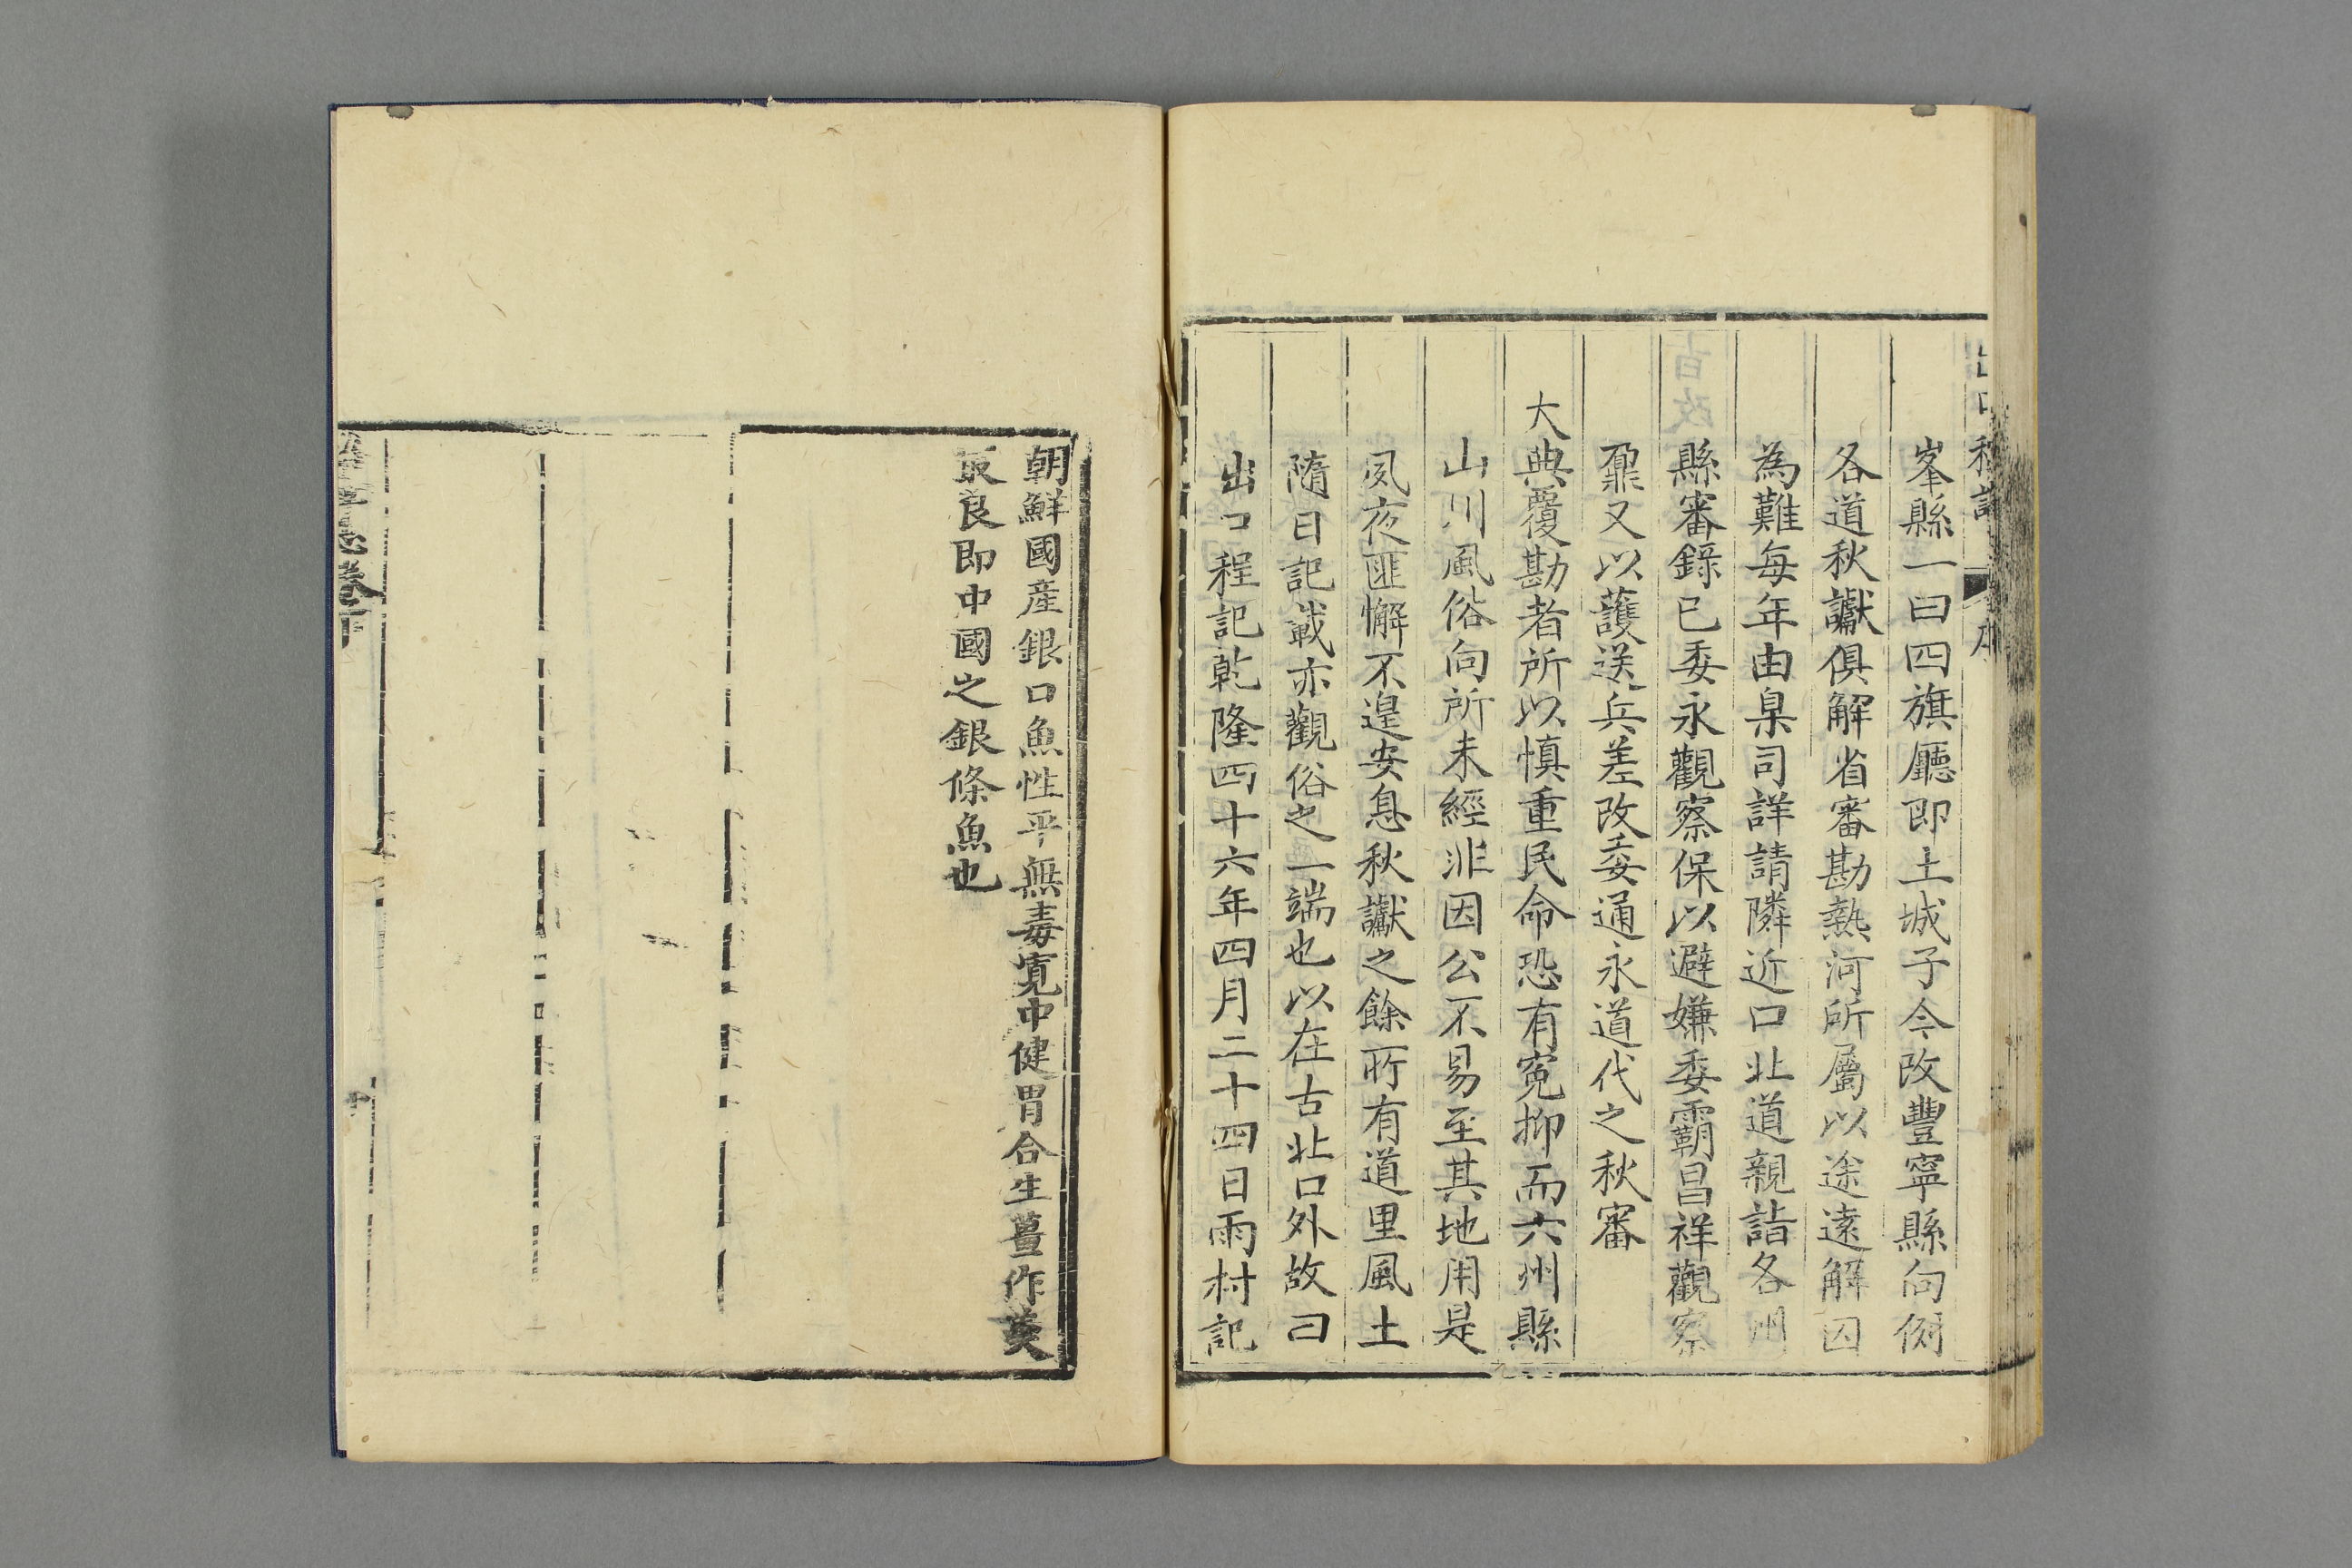 峯縣一曰四旗廳即土城子今改豐寧縣向例
各道秋讞俱解省審勘熱河所屬以途遠解囚
為難每年由臬司詳請隣近口北道親詣各州
縣審錄已委永觀察保以避嫌委霸昌祥觀察
鼐又以護送兵差改委通永道代之秋審
大典覆勘者所以慎重民命恐有寃抑而六州縣
山川風俗向所未經非因公不易至其地用是
夙夜匪懈不遑安息秋讞之餘所有道里風土
隨日記載亦觀俗之一端也以在古北口外故曰
出口程記乾隆四十六年四月二十四日雨村記
朝鮮國産銀口魚性平無毒寛中健胃合生薑作羮
最良即中國之銀條魚也
卷下